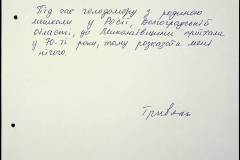 Під час голодомору з родиною
мешкали у Росії, Волгоградській
області, до Миколаївщини приїхали
у 70-ті роки, тому розказати мені
нічого.